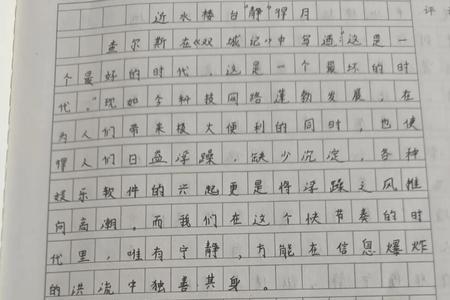 近水楼台"静"得月
查尔斯在《双城记》中写道"这是一
个最好的时代，这是一个最坏的时
代。"现如今科技网络蓬勃发展，在
为人们带来极大便利的同时，也使
得人们日益浮躁，缺少沉淀，各种
娱乐软件的兴起更是将浮躁之风推
向高潮。而我们在这个快节奏的时
代里，唯有宁静，方能在信息爆炸
的洪流中独善其身。
评